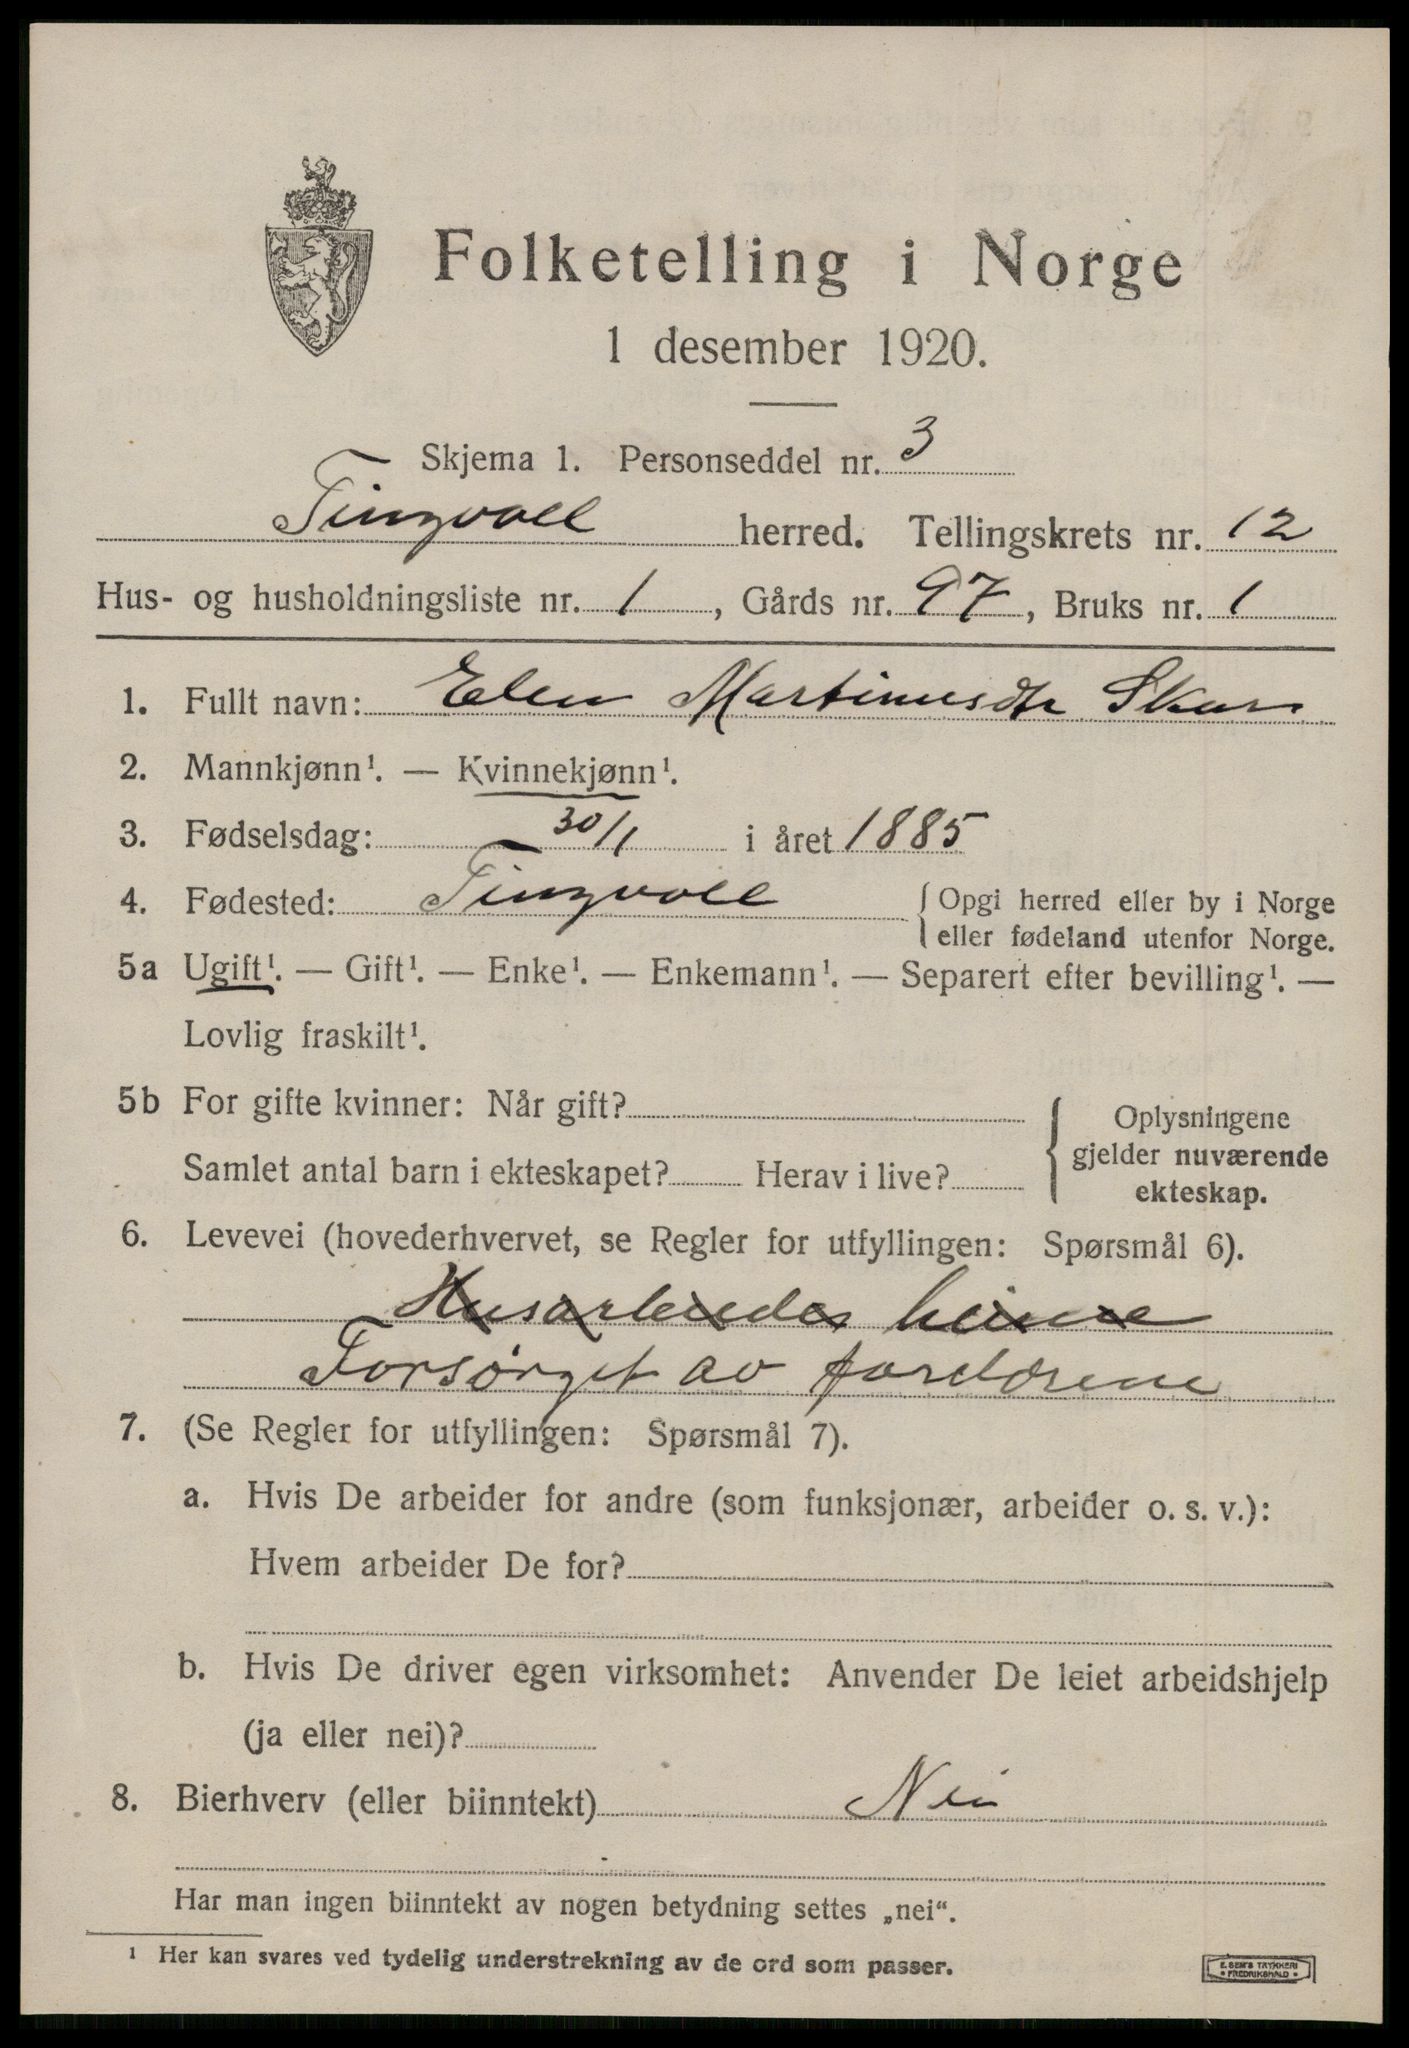 Folketelling i Norge
1 desember 1920.
Skjema 1. Personseddel nr. 3
Tingvoll herred. Tellingskrets nr. 12
Hus- og husholdningsliste nr. 1, Gårds nr. 97, Bruks nr. 1
1. Fullt navn: Elen Martinusdtr
2. Mannkjønn¹. — Kvinnekjønn¹.
3. Fødselsdag: 30/1 i året 1885
4. Fødested: Tingvoll {Opgi herred eller by i Norge
eller fødeland utenfor Norge.
5a Ugift¹. — Gift¹. — Enke¹. — Enkemann¹. — Separert efter bevilling¹. —
Lovlig fraskilt¹.
5b For gifte kvinner: Når gift? { Oplysningene
gjelder nuværende
Samlet antal barn i ekteskapet? Herav i live?
ekteskap.
6. Levevei (hovederhvervet, se Regler for utfyllingen: Spørsmål 6).
Husarbeides heime
Forsørget av foreldrene
7. (Se Regler for utfyllingen: Spørsmål 7).
a. Hvis De arbeider for andre (som funksjonær, arbeider o. s. v.):
Hvem arbeider De for?
b. Hvis De driver egen virksomhet: Anvender De leiet arbeidshjelp
(ja eller nei)?
8. Bierhverv (eller biinntekt) Nei
Har man ingen biinntekt av nogen betydning settes „nei“.
¹ Her kan svares ved tydelig understrekning av de ord som passer.
E. SEM'S TRYKKERI
• FREDRIKSHALD •